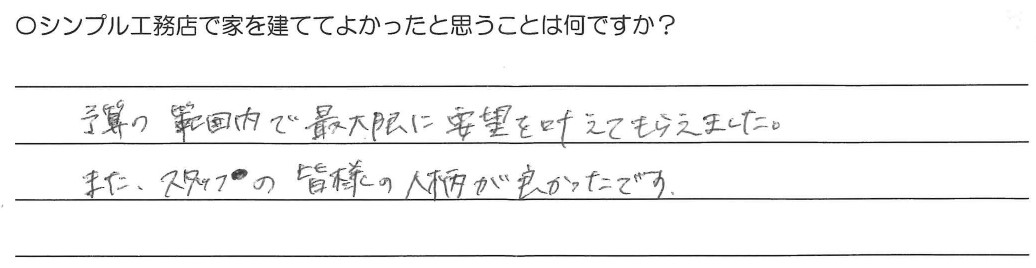 ○シンプル工務店で家を建ててよかったと思うことは何ですか？
予算の範囲内で最大限に要望を叶えてもらえました。
また、スタッフの皆様の人柄が良かったです.